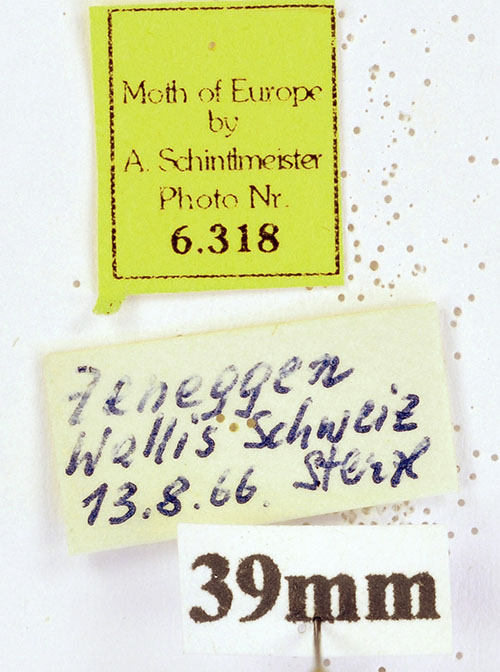 Moth of Europe
by
A. Schintlmeister
Photo Nr.
6.318
Zeneggen
Wallis Schweiz
13.8.66.
39mm